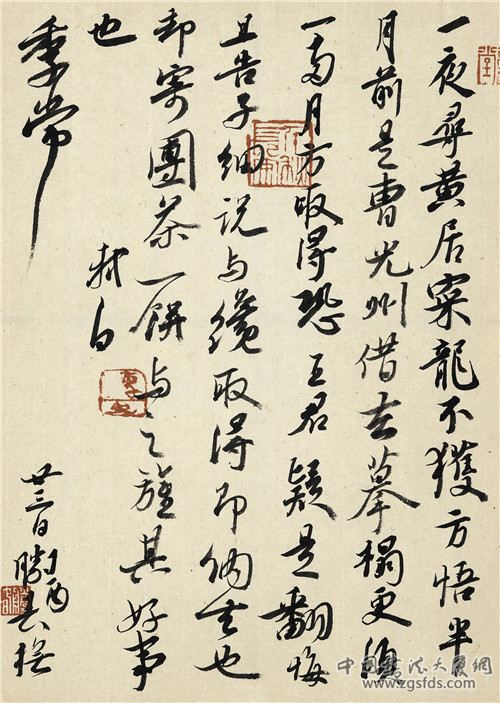 一夜尋黄居寀龍不獲方悟半
月前是曹光州借去摹搨更須
一兩月方取得恐王君疑是翻悔
且告子細說與纔取得即納去也
却寄團茶一餅與之旌其好事
也
軾白
季常
廿三日
丁酉
www.zgsfds.com